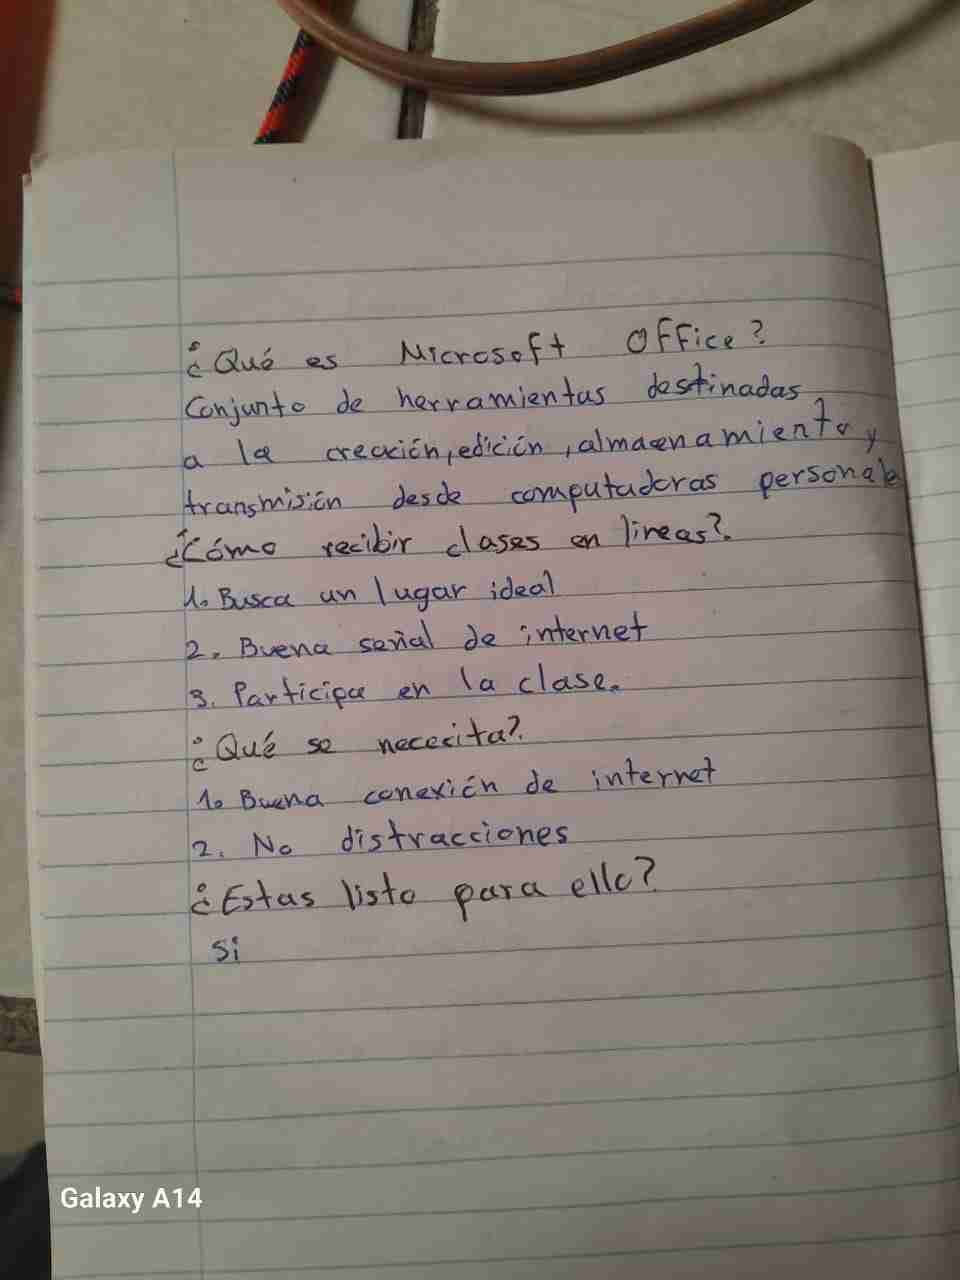 ¿Qué es Microsoft Office?
Conjunto de herramientas destinadas
a la creación, edición, almaenamiento y
transmisión desde computadoras personale
¿Cómo recibir clases en lineas?.
1. Busca un lugar ideal
2. Buena señal de internet
3. Participa en la clase.
¿Qué se nececita?.
1. Buena conexión de internet
2. No distracciones
¿Estas listo para ello?
Si
Galaxy A14